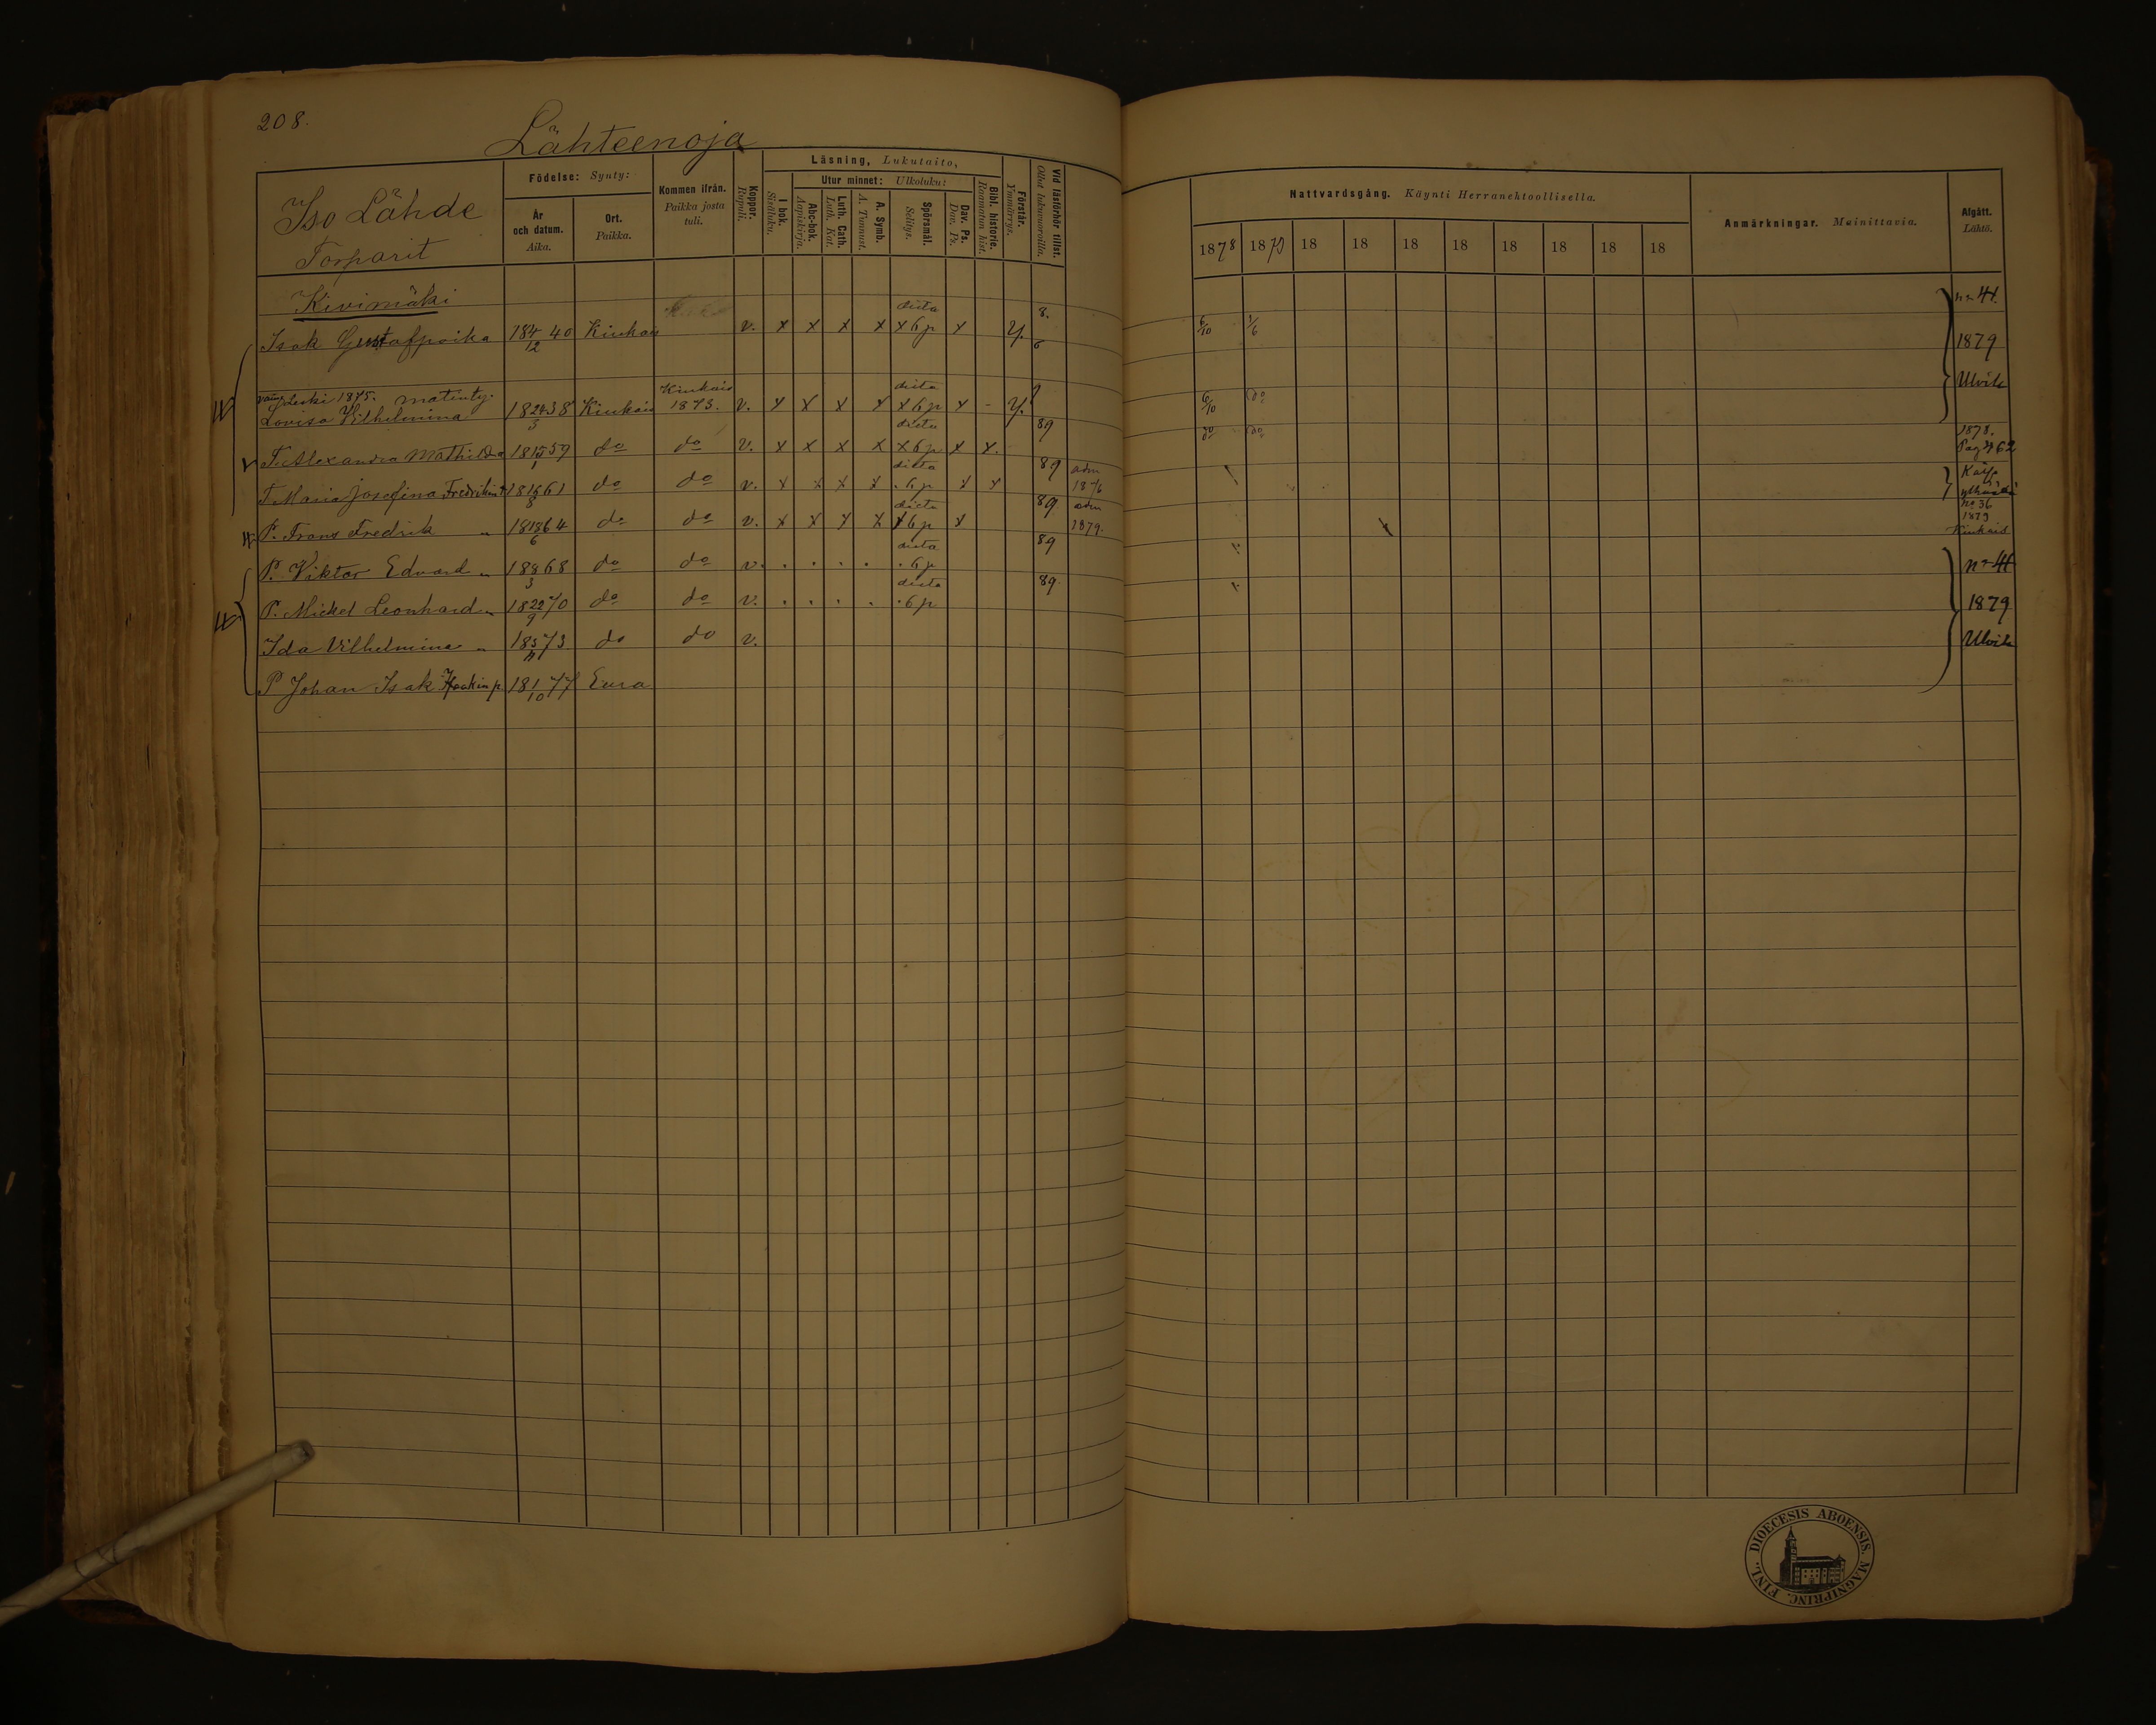 208.
Lähteenoja
Iso Lähde
Torparit
Födelse: Synty:
År och datum. Aika.
Ort. Paikka.
Kommen ifrån. Paikka josta tuli.
Koppor. Rupuli.
Läsning, Lukutaito,
I bok. Sisäluku.
Utur minnet: Ulkoluku:
Abc-bok. Aapiskirja.
Luth. Cath. Luth. Kat.
A. Symb. A. Tunnust.
Spörsmål. Selitys.
Dav. Ps. Dav. Ps.
Bibl. historie. Raamatun hist.
Förstår. Ymmärrys.
Vid läsförhör tillst. Ollut lukuvuoroilla.
Nattvardsgång. Käynti Herranehtoollisella.
1878 1879 18 18 18 18 18 18 18 18
Anmärkningar. Muinittavia.
Afgått. Lähtö.
Kivimäki
Isak Gustafpoika 18 4/12 40 Kiukais v. x x x x x 6 p x y. 8. 6 6/10 1/6 1879
Ulvila
leski 1875. matinty.
Lovisa Vilhelmina 18 24/3 38 Kiukais Kiukais 1873. v. x x x x x 6 p x - y. 6/10 do
T. Alexandra Mathilda 18 15/1 59 do do v. x x x x x 6 p x x. 89 do do 1878. Pag 462
T. Maria Josefina Fredrikint 18 16/8 61 do do v. x x x x . 6 p x x 89 adm 1876
P. Frans Fredrik " 18 18/6 64 do do v. x x x x x 6 p x 89 adm 1879. no 36 1879 Kiukais
P. Viktor Edvard " 18 8/3 68 do do v. . . . . . 6 p 89
P. Mickel Leonhard " 18 22/9 70 do do v. . . . . . 6 p 89 1879
Ida Vilhelmina " 18 5/11 73 do do v. Ulvila
P Johan Isak Isakinp 18 1/10 77 Eura
DIOECESIS ABOENSIS. MAGNIPRINC. FINL.